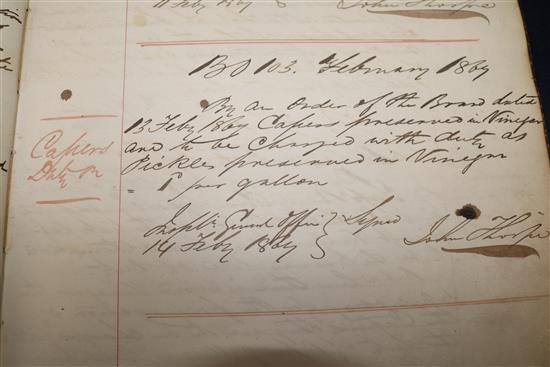 11 Feby 1867 John Thorpe
BO 103. February 1867
By an Order of the Board dated
13 Feby 1867 Capers preserved in Vinegar
and to be Charged with duty as
Pickles preserved in Vinegar
= 1d per gallon
Capers
Duty on
Genl Office } Signed
14 Feby 1867 John Thorpe